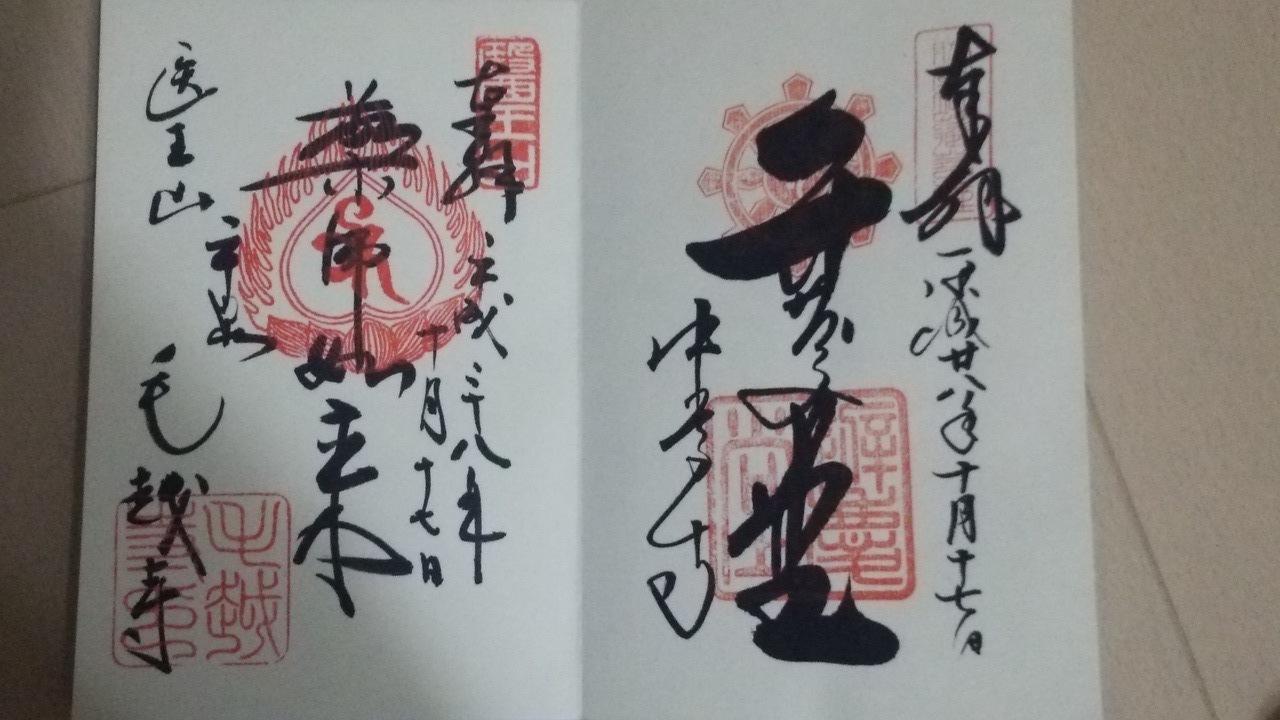 奉拝
平成廿八年十月十七日
中尊寺
奉拝
平成二十八年
十月十七日
薬師如来
医王山
平泉
毛越寺